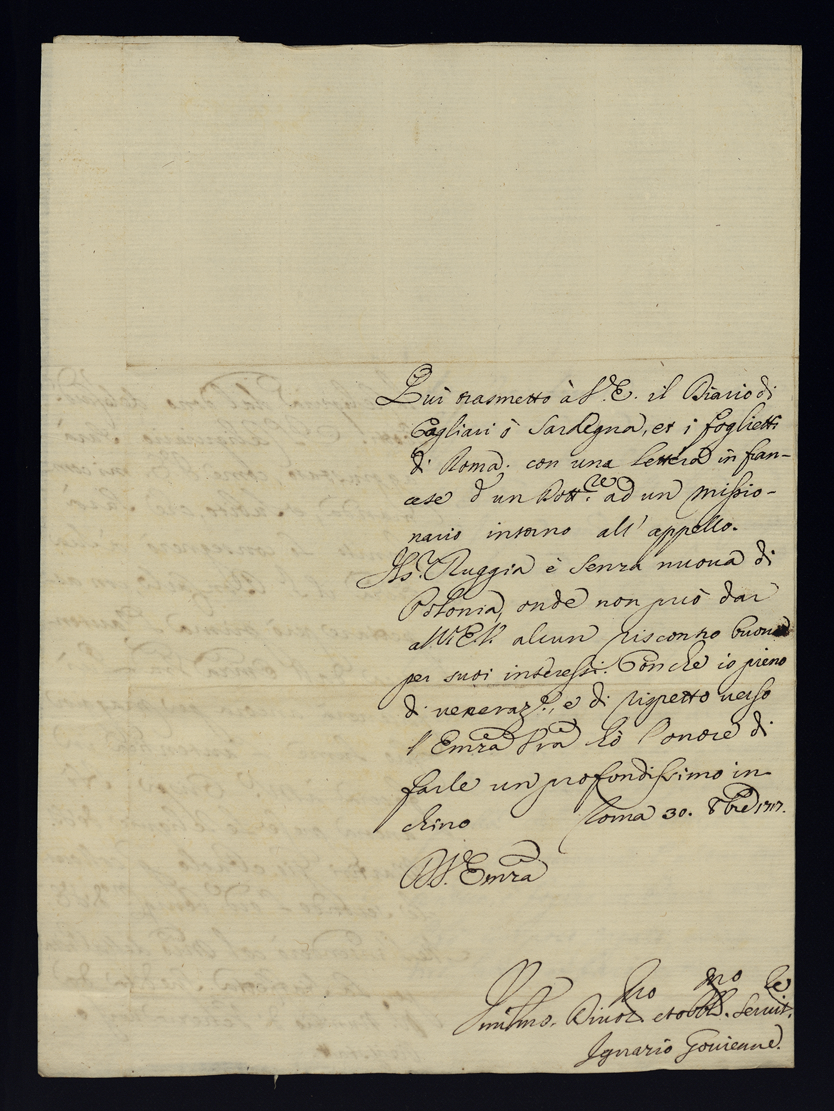 Qui trasmetto à V. E. il Diario di
Cagliari ò Sardegna, et i foglietti
di Roma. con una lettera in fran-
cese d'un Dott.re ad un missio-
nario intorno all'appello.
Ms.r Ruggia è senza nuova di
Polonia, onde non può dar
all'V. Em. alcun riscontro buono
per suoi interessi. Con che io pieno
di veneraz.e, e di rispetto verso
l'Emza Vra hò l'onore di
farle un profondissimo in-
chino Roma 30. 8bre 1717.
D. V. Emza
Umilmo. Divot.mo et obb.mo Servit.re
Ignazio